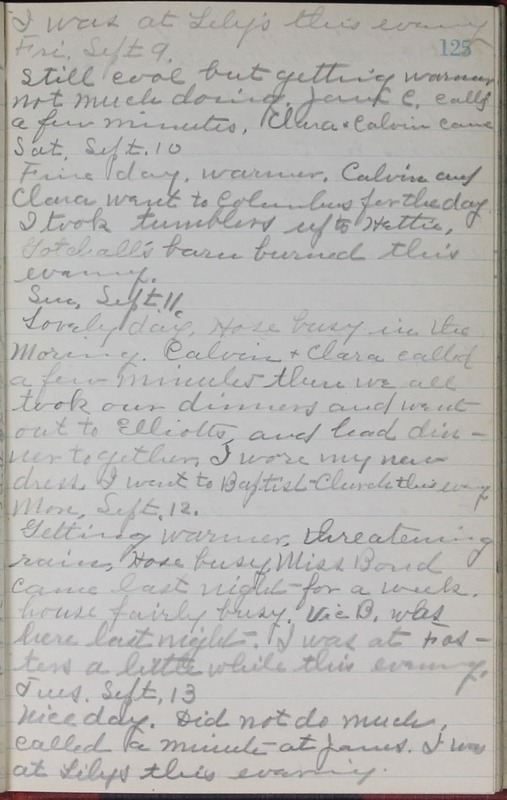 I was at Lily's this evening
Fri, Sept 9.
125
Still cool but getting warmer
not much doing. Jane C. calls
a few minutes, Clara & Calvin came
Sat, Sept. 10
Fine day, warmer. Calvin and
Clara want to Columbus for the day
I took tumblers up to Hettie,
Gotshall's barn burned this
evening.
Sun, Sept 11,
Lovely day, Hose busy in the
Morning. Calvin & Clara called
a few minutes then we all
took our dinners and went
out to Elliotts, and had din-
ner together, I wore my new
dress, I went to Baptist Church this eving
Mon, Sept, 12.
Getting warmer, threatening
rain, Hose busy, Miss Bond
came last night for a week.
house fairly busy. Vic B. was
here last night. I was at Fos-
ters a little while this evening.
Tues. Sept, 13
Nice day. Did not do much,
called a minute at Janes. I was
at Lilys this evening.